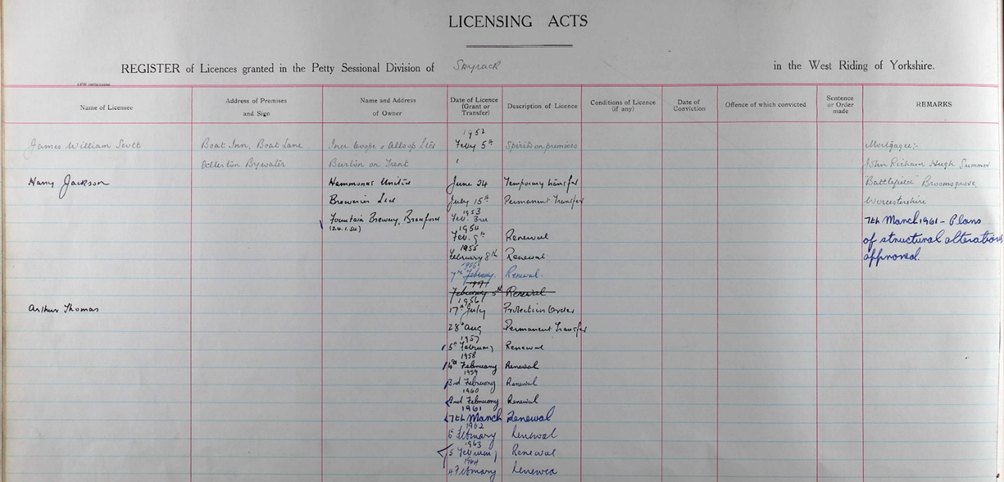 LICENSING ACTS
REGISTER of Licences granted in the Petty Sessional Division of Skyrack in the West Riding of Yorkshire.
Name of Licensee
Address of Premises and Sign
Name and Address of Owner
Date of Licence (Grant or Transfer)
Description of Licence
Conditions of Licence (if any)
Date of Conviction
Offence of which convicted
Sentence or Order made
REMARKS
1952
James William Scott Boat Inn, Boat Lane Inn Coope & Allsop Ltd Feby 5th Spirits on premises Mortgagee:-
Allerton Bywater Burton on Trent John Richam Hugh
Harry Jackson Hammonds United June 24 Temporary transfer "Battlefield" Bromsgrove
Breweries Ltd July 15th Permanent Transfer Worcestershire
1953
Fountain Brewery, Bradford Feb. 3rd 7th March 1961 - Plans
(24.1.54)
1954
Feb. 9th Renewal of structural alterations
1955
February 8th Renewal approved.
7th February. Renewal.
February 5th Renewal
1956
Arthur Thomas 17th July Protection Order
28th Aug Permanent Transfer
1957
5th February Renewal
1958
4th February Renewal
1959
3rd February Renewal
1960
2nd February Renewal
1961
7th March Renewal
1962
6 February Renewal
1963
5 February Renewal
1964
4 February Renewal